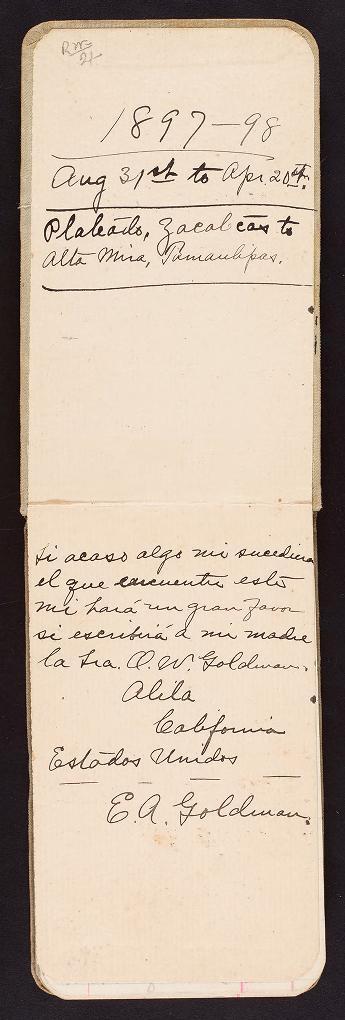 1897-98
Aug 31st to Apr 20st.
Plateado, Zacatecas to
Alta Mira, Tamaulipas.
Si acaso algo mi sucediera
el que encuentre esto
mi hará un gran favor
si escribirá á mi madre
la Sra. O. W. Goldman.
Alila
California
Estados Unidos
E. A. Goldman.